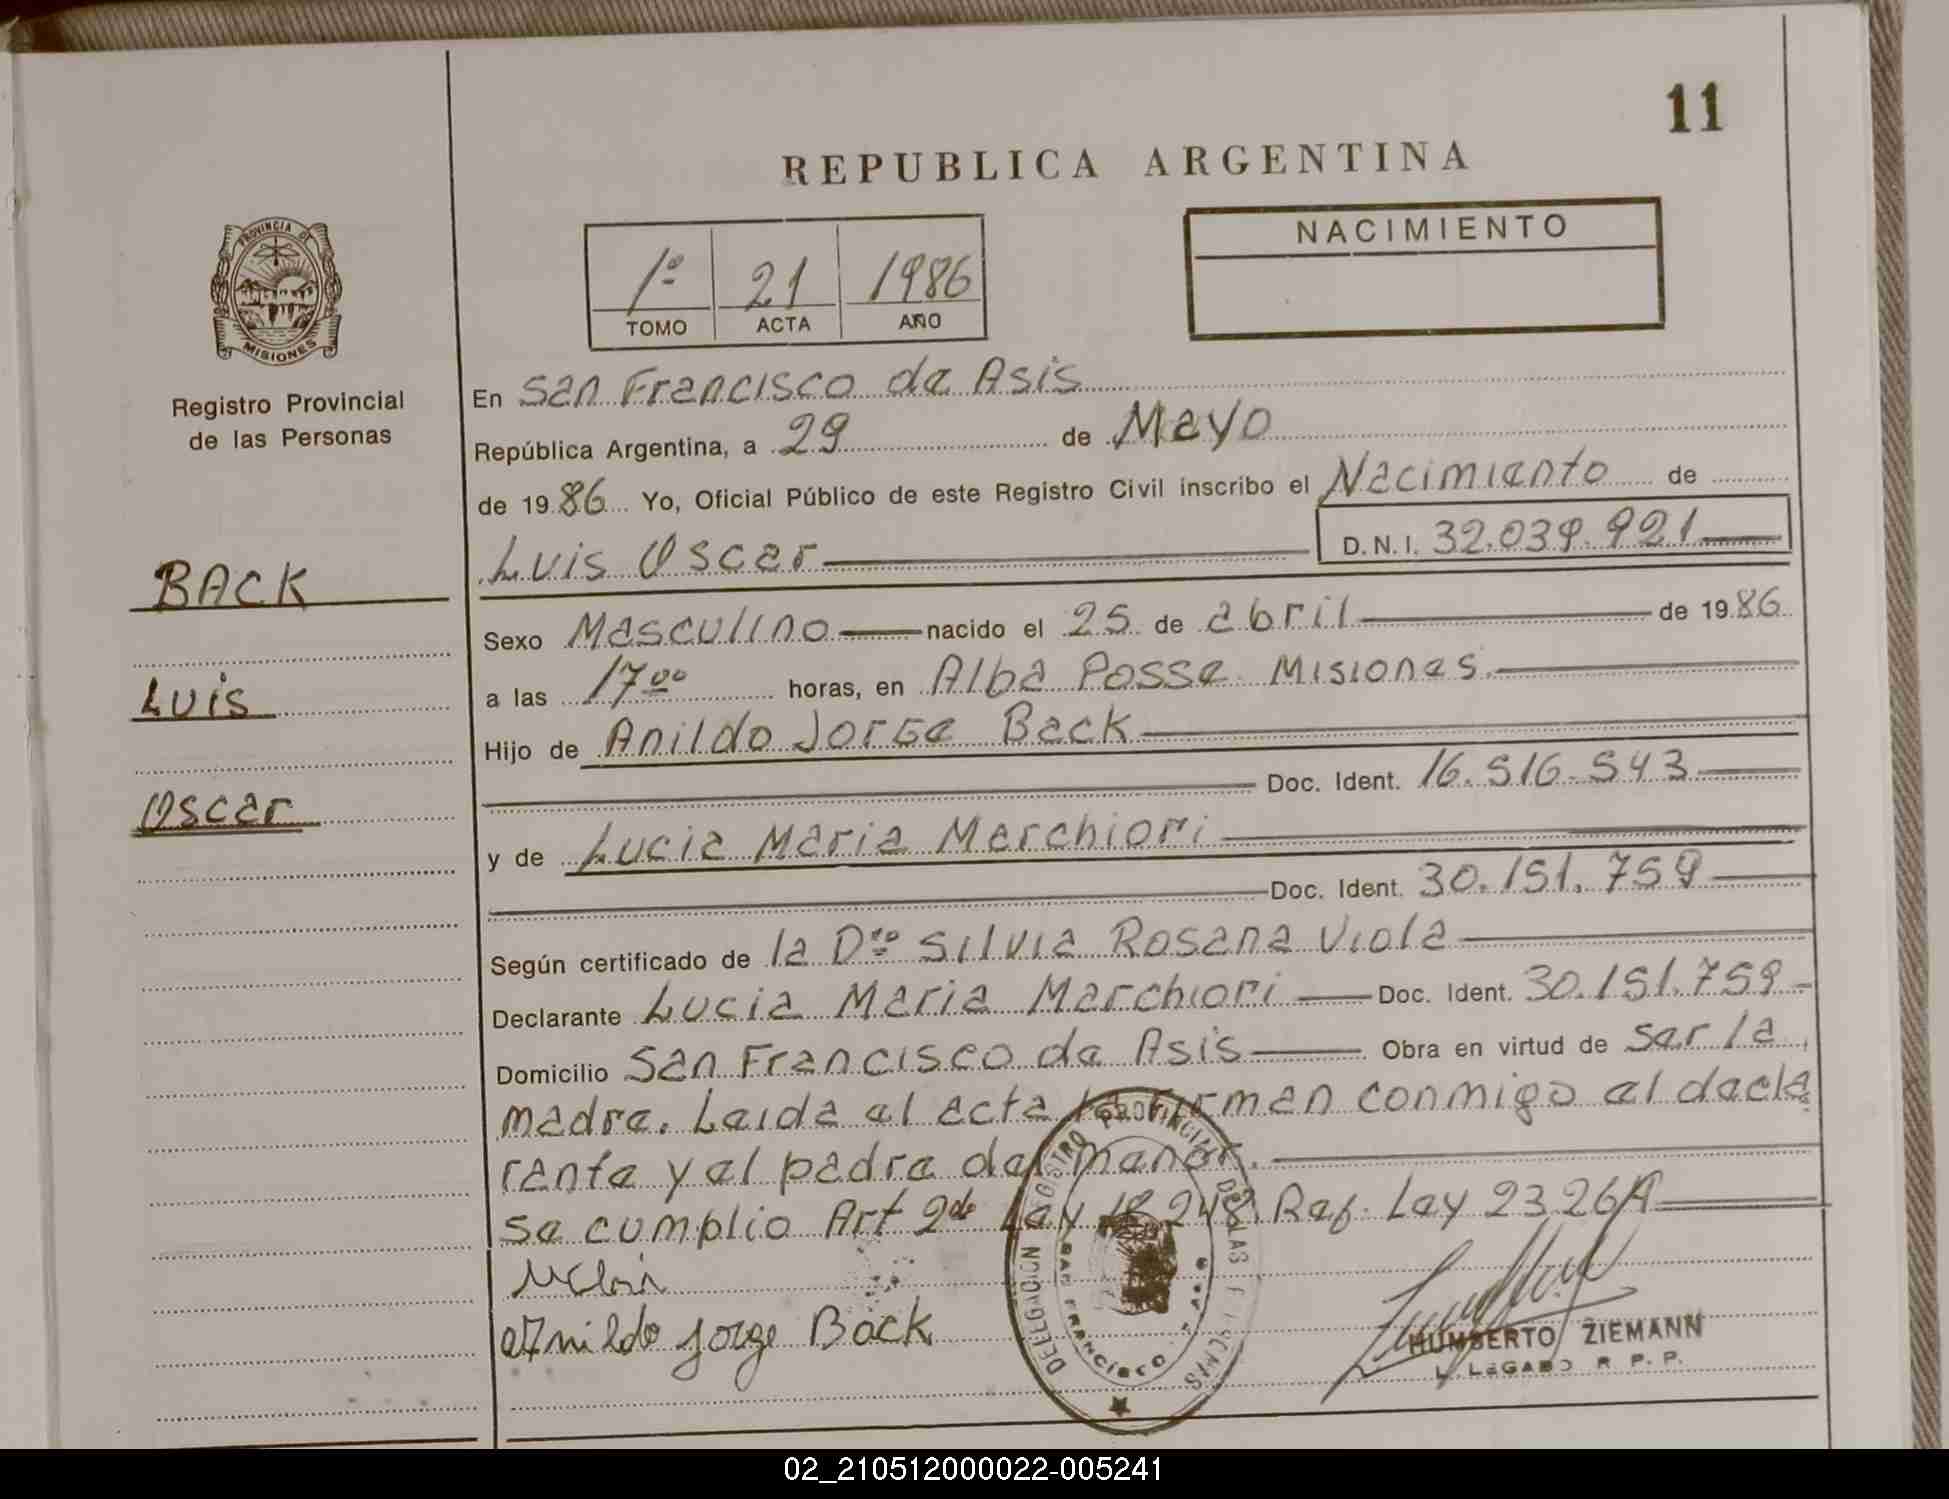 11
REPUBLICA ARGENTINA
PROVINCIA DE
MISIONES
Registro Provincial
de las Personas
1º 21 1986
TOMO ACTA AÑO
NACIMIENTO
En San Francisco de Asis
República Argentina, a 29 de Mayo
de 1986 Yo, Oficial Público de este Registro Civil inscribo el Nacimiento de
Luis Oscar D.N.I. 32.039.921
BACK
Luis
Oscar
Sexo Masculino nacido el 25 de abril de 1986
a las 17 00 horas, en Alba Posse Misiones
Hijo de Anildo Jorge Back
Doc. Ident. 16.516.543
y de Lucia Maria Marchiori
Doc. Ident. 30.151.759
Según certificado de la Dra Silvia Rosana Viola
Declarante Lucia Maria Marchiori Doc. Ident. 30.151.759
Domicilio San Francisco de Asis Obra en virtud de ser la
madre. Leida el acta la firman conmigo el decla
rante y el padre del menor.
se cumplio Art 2do Ley 18.248 Ref. Ley 23264
Anildo Jorge Back
DELEGACION REGISTRO PROVINCIAL DE LAS
SAN FRANCISCO
HUMBERTO ZIEMANN
R. P. P.
02_210512000022-005241